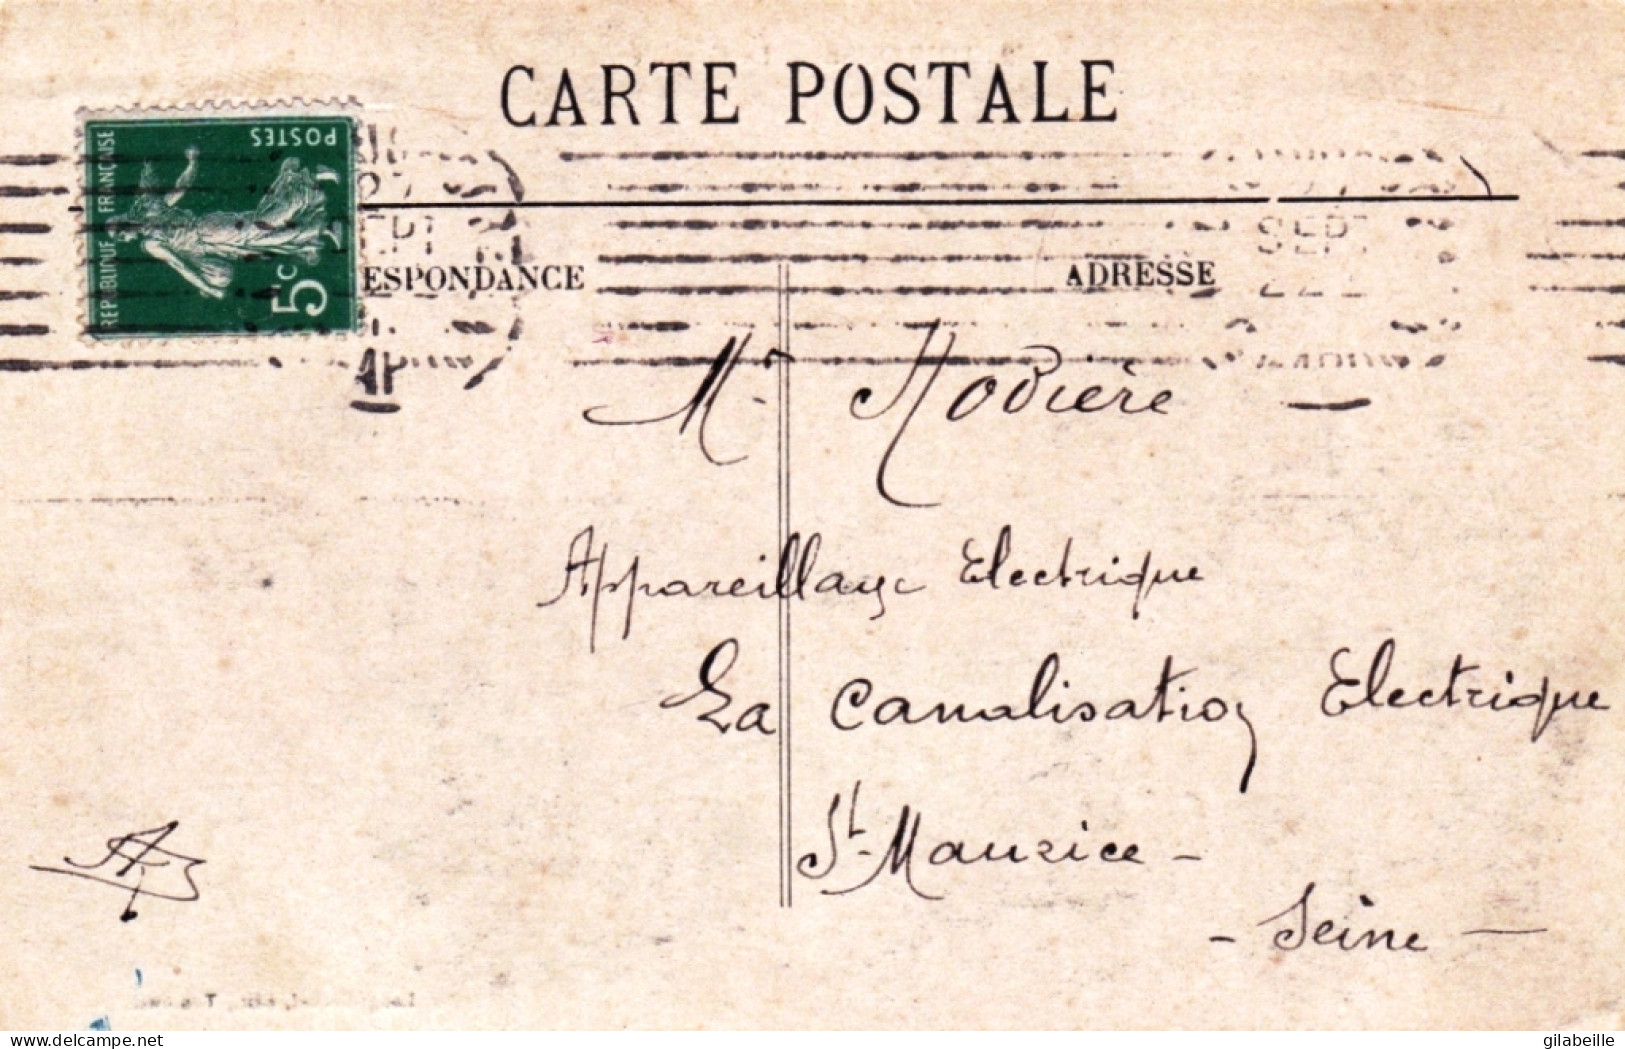 CARTE POSTALE
REPUBLIQUE FRANÇAISE
POSTES
5c
SEPT
ESPONDANCE
ADRESSE
Mr
Appareillage Electrique
La Canalisation Electrique
St-Maurice -
- Seine -
www.delcampe.net
gilabeille